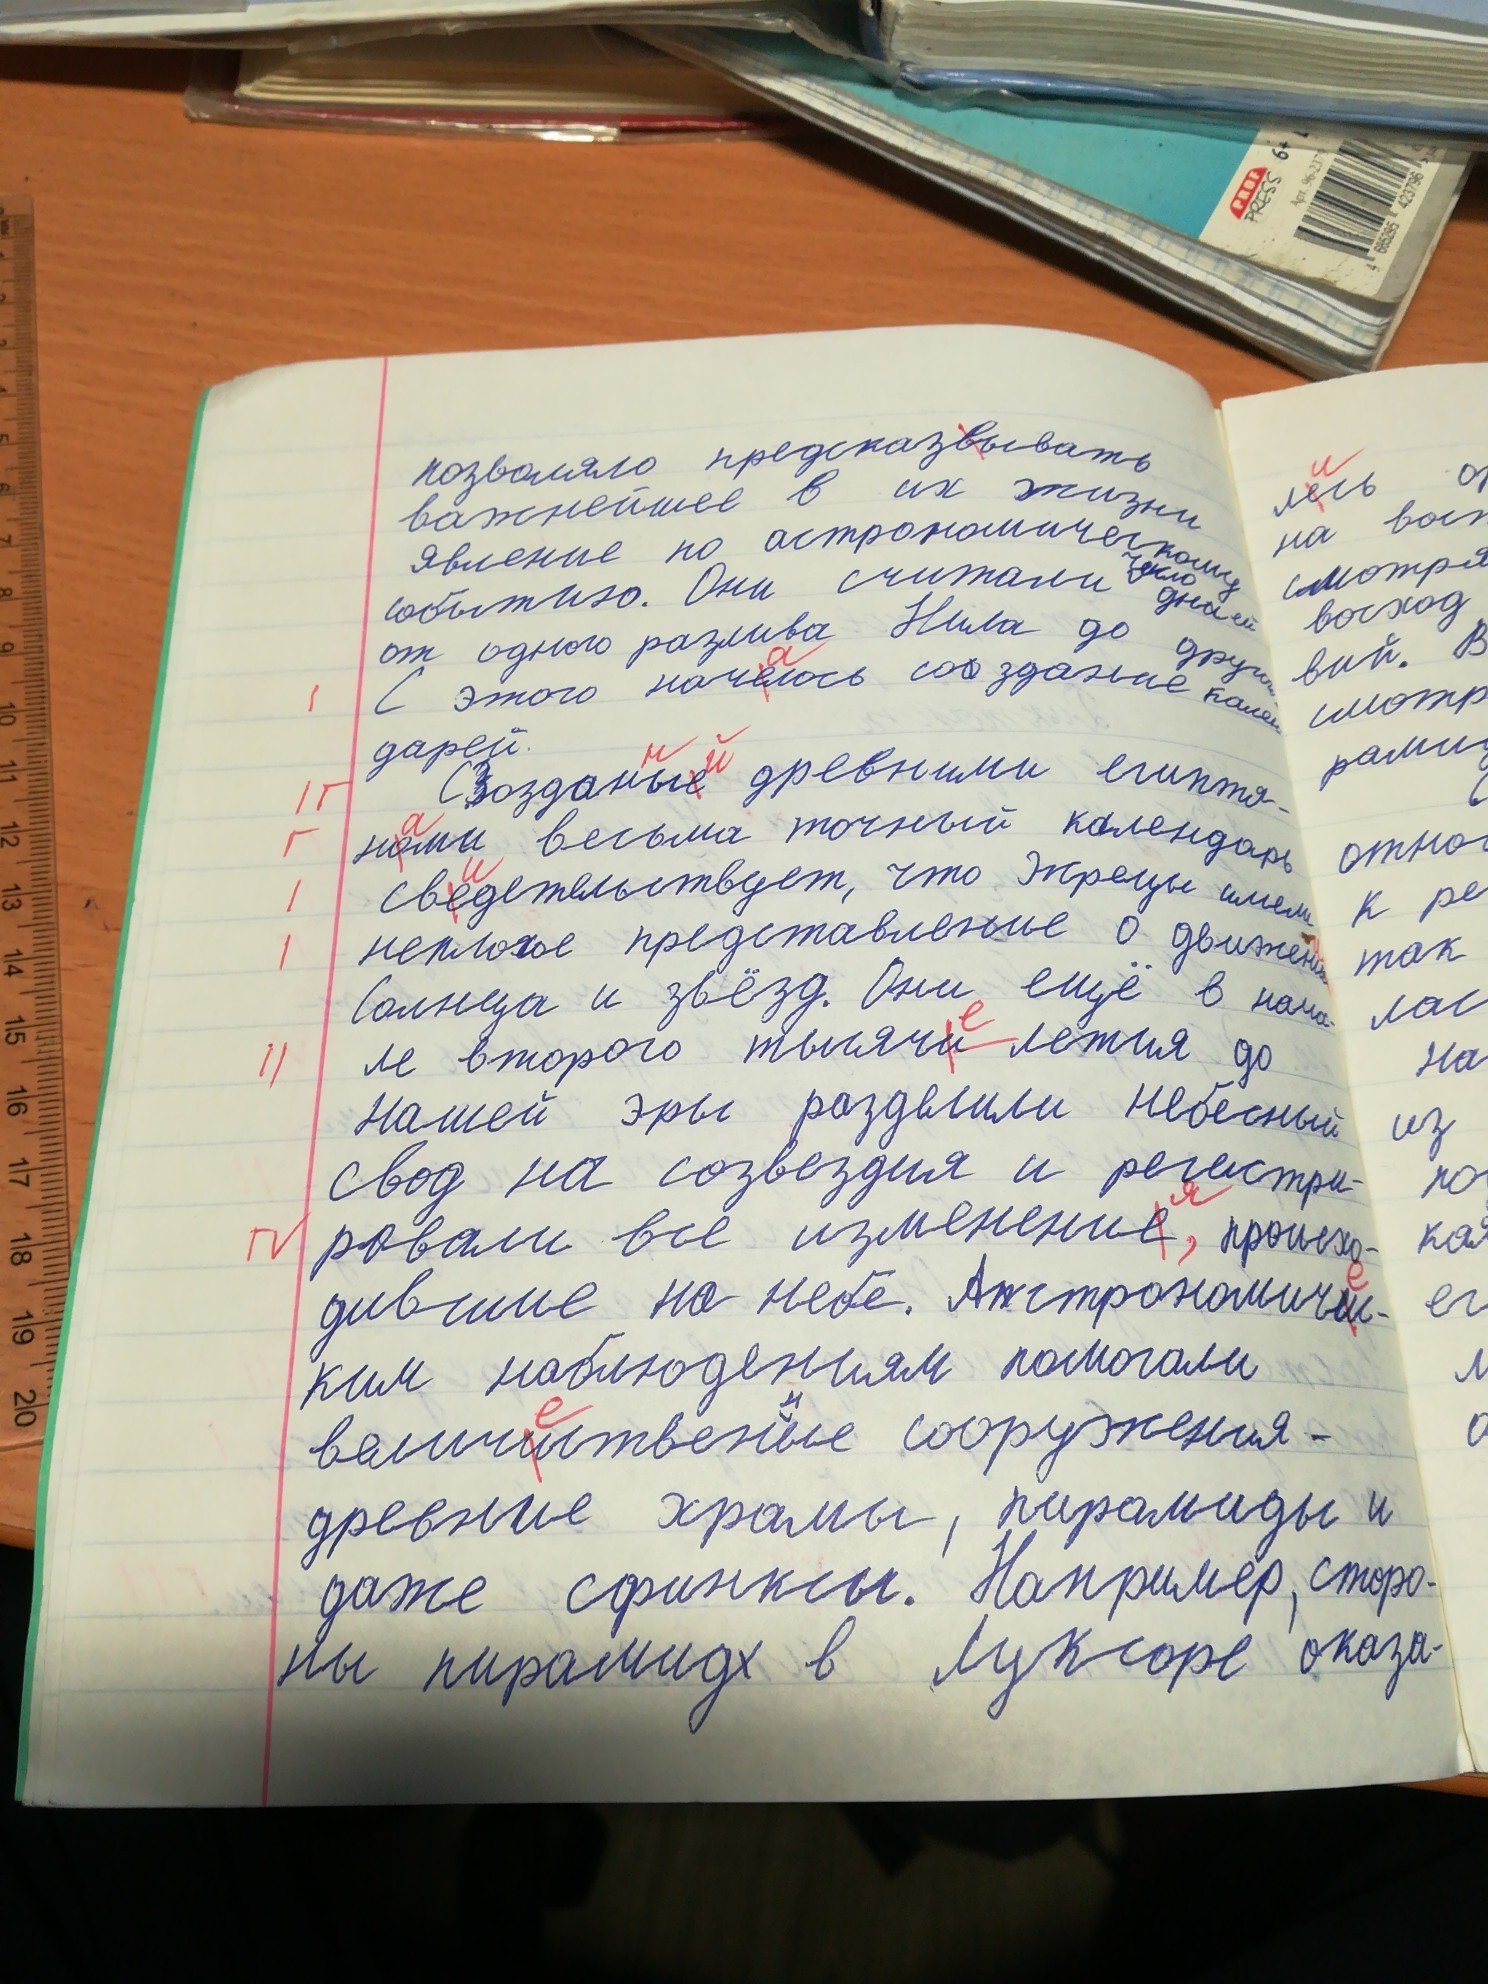 PROF
PRESS
6+
4 665295 423796
позволяло предсказвывать
важнейшее в их жизни
явление по астрономическому
событию. Они считали число дней
от одного разлива Нила до другого
С этого началось создание кален
дарей.
Созданный древними египтя-
нами весьма точный календарь
свидетельствует, что жрецы имели
неплохое представление о движении
Солнца и звёзд. Они ещё в нача-
ле второго тысячи летия до
нашей эры разделили небесный
свод на созвездия и регистри-
ровали все изменение, происхо-
дившие на небе. Астрономичи-
ким наблюдениям помогали
величитвенные сооружения -
древние храмы, пирамиды и
даже сфинксы. Например, сторо-
ны пирамидх в Луксоре оказа-
лись
на вост
смотря
восход
вий. В
смотр
рамид
относ
к ре
так
лас
на
из
по
кая
ег